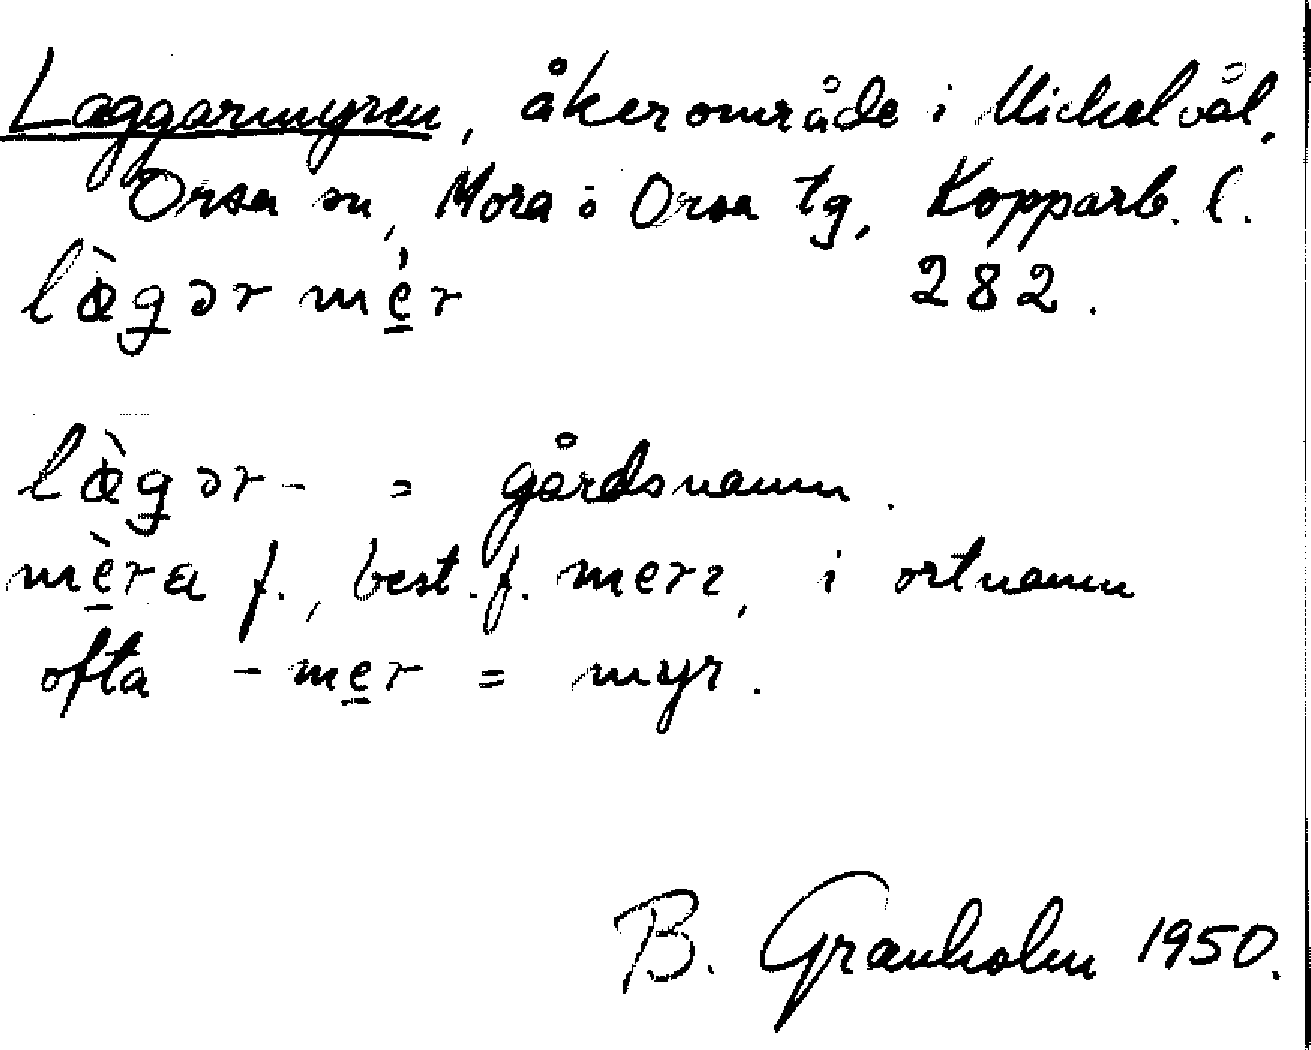 Laggarmyren, åkerområde i Mickelvål,
Orsa sn, Mora o Orsa tg, Kopparb. l.
læ̀gər mé̱r 282.
læ̀gər- = gårdsnamn.
mè̱ra f., best. f. merı, i ortnamn
ofta -me̱r = myr.
B. Granholm 1950.